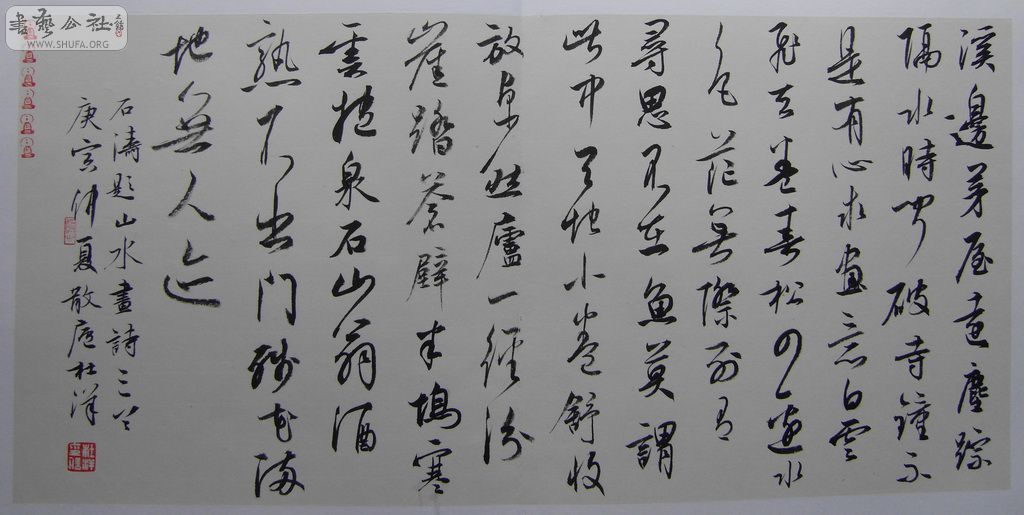 溪邊茅屋遠塵蹤
隔水時聞破寺鐘不
是有心求畫意白雲
飛去卷青松四邊水
色茫無際別有
尋思不在魚莫謂
此中天地小卷舒收
放卓然廬一徑沿
崖踏蒼壁半塢寒
雲抱泉石山翁酒
熟不出門殘花滿
地無人迹
石濤題山水畫詩三首
庚寅仲夏散庵杜洋
書藝公社
WWW.SHUFA.ORG